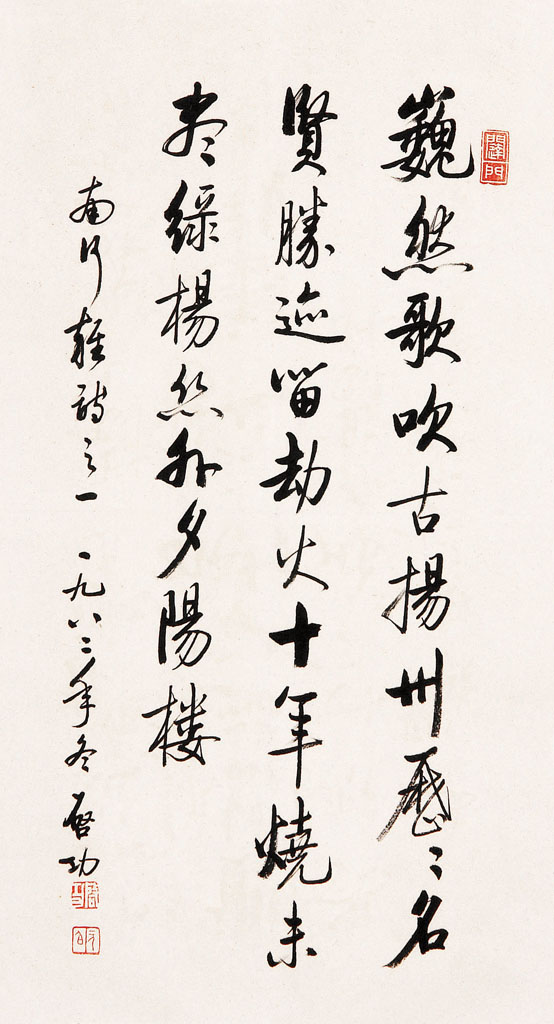 巍然歌吹古揚州歷〻名
賢勝迹留劫火十年燒未
盡綠楊絲外夕陽樓
南行雜詩之一 一九八二年冬 啓功